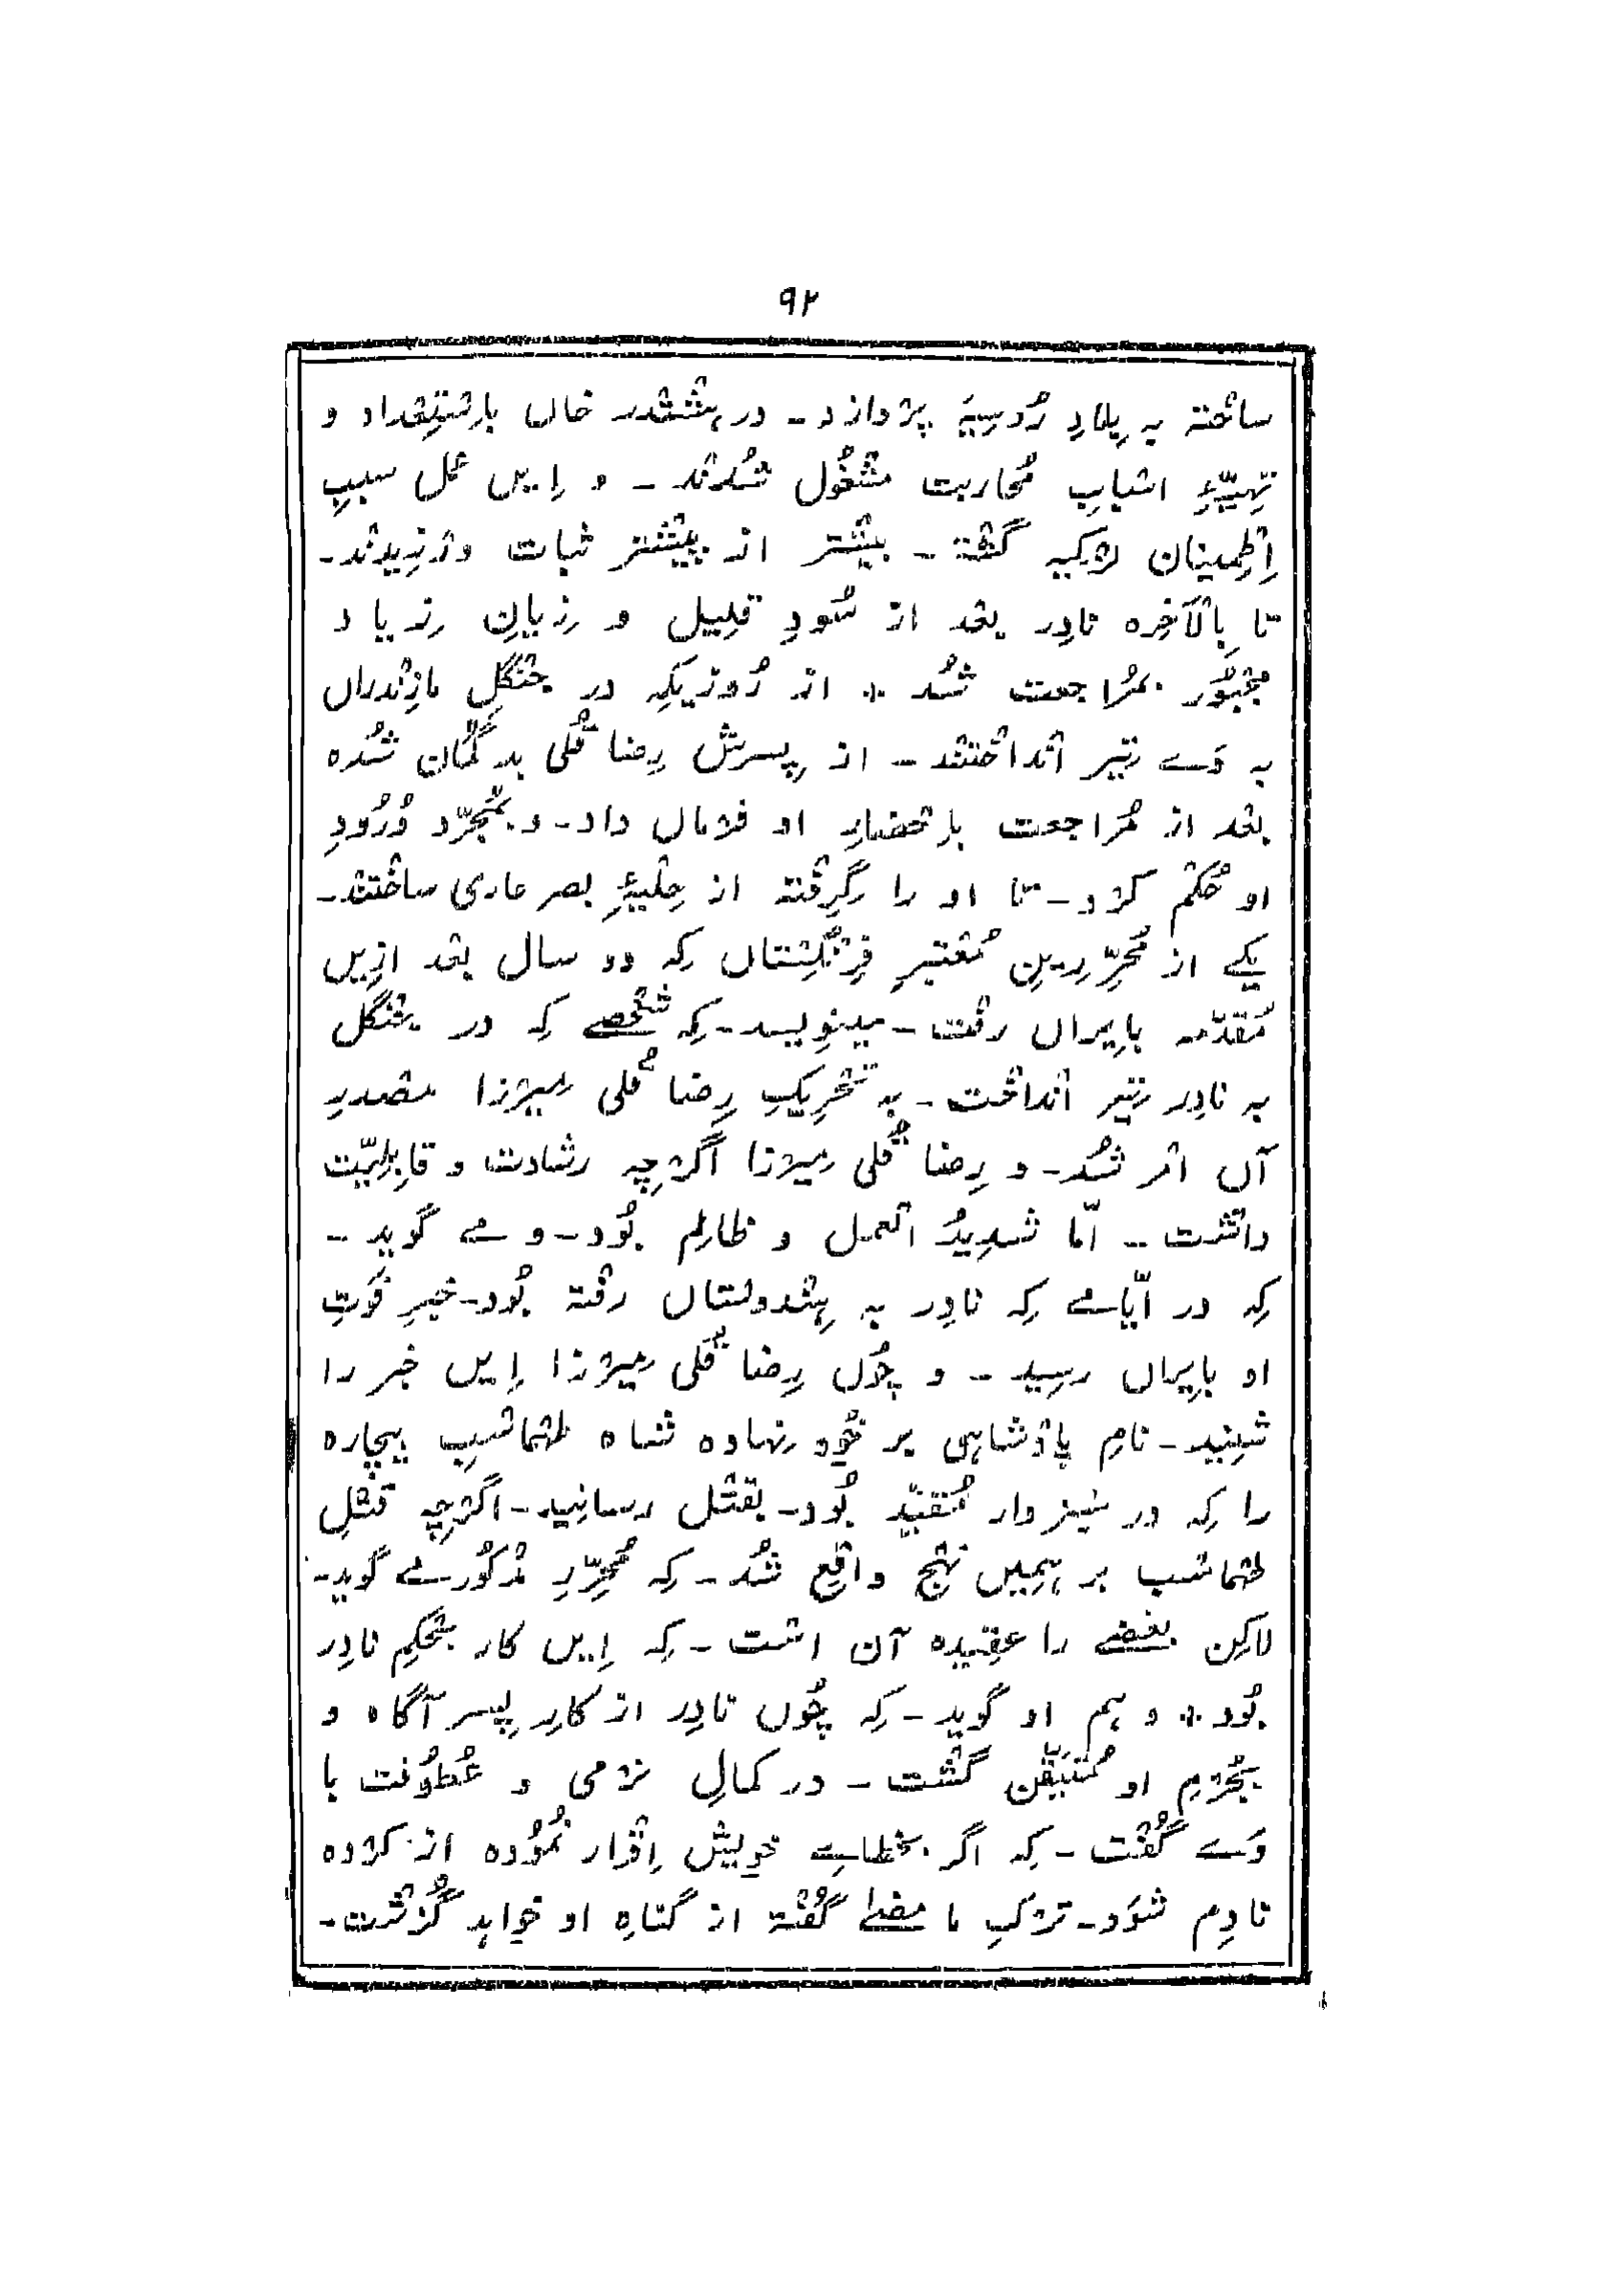 ۹۲
ساخته به بلادِ رُوسِیَه پردازد - در هشتدر خاں بِاستِعداد و
تہیّۂِ اسبابِ مُحاربت مشغُول شُدند - و اِیں عمل سببِ
اِطمینان لزکیہ گشتہ - بیشتر از پیشتر ثبات ورزیدند -
تا بِالآخِرہ نادِر بعد از سُودِ قلِیل و زِیانِ زِیاد
مجبُور بمُراجعت شُد ٭ از رُوزیکِہ در جنگلِ مازندراں
بہ وَے تِیر انداختند - از پِسرش رِضا قُلی بد گُمان شُدہ
بعد از مُراجعت بِاحضارِ او فرماں داد - و بمُجرّد وُرُودِ
او حُکم کرد - تا او را گِرِفتہ از حِلیۂِ بصر عاری ساختند -
یکے از مُحرِّرِینِ مُعتبرِ فِرنگِستاں کِہ دو سال بعد ازِیں
مُقدّمہ بایراں رفت - مینوِیسد - کِہ شخصے کِہ در جنگل
بہ نادِر تِیر انداخت - بہ تحرِیکِ رِضا قُلی مِیرزا مصدرِ
آں امر شُد - و رِضا قُلی مِیرزا اگرچِہ رشادت و قابِلِیّت
داشت - امّا شدِیدُ العمل و ظالِم بُود - و مے گوید -
کِہ در ایّامے کِہ نادِر بہ ہِندوستاں رفتہ بُود - خبرِ فَوتِ
او بایراں رسِید - و چُوں رِضا قُلی مِیرزا اِیں خبر را
شنِید - نامِ پادشاہی بر خُود نِہادہ شاہ طہماسبِ بیچارہ
را کِہ در سبزوار مُقیّد بُود - بقتل رسانِید - اگرچِہ قتلِ
طہماسب بر ہمِیں نہج واقِع شُد - کِہ مُحرِّرِ مذکُور مے گوید -
لاکِن بعضے را عقِیدہ آن است - کِہ اِیں کار بحُکمِ نادِر
بُود ٭ و ہم او گوید - کِہ چُوں نادِر از کارِ پِسر آگاہ و
بجُرمِ او مُتیقِّن گشت - در کمالِ نرمی و عُطُوفت با
وَے گُفت - کِہ اگر بخطاے خویش اِقرار نمُودہ از کردہ
نادِم شوَد - ترکِ ما مضیٰ گُفتہ از گناہِ او خواہد گُزشت -